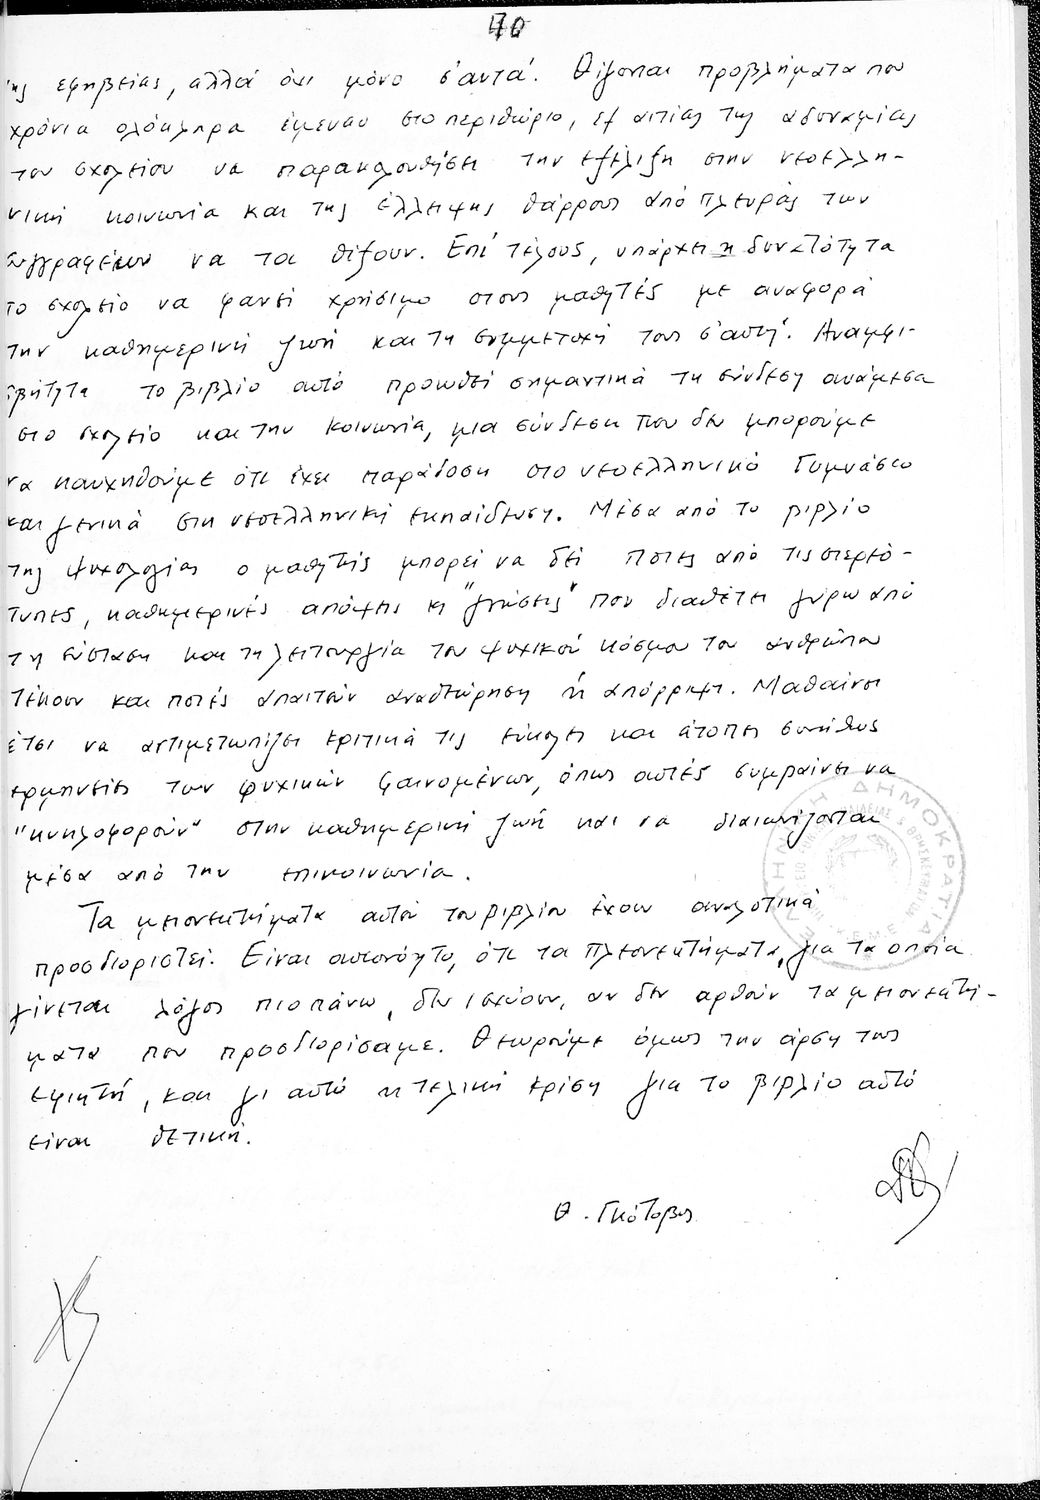 70
της εφηβείας, αλλά όχι μόνο σ'αυτά. Θίγονται προβλήματα που
χρόνια ολόκληρα έμεναν στο περιθώριο, εξ αιτίας της αδυναμίας
του σχολείου να παρακολουθήσει την εξέλιξη στην νεοελλη-
νική κοινωνία και της έλλειψης θάρρους από πλευράς των
συγγραφέων να τα θίξουν. Επί τέλους, υπάρχει η δυνατότητα
το σχολείο να φανεί χρήσιμο στους μαθητές με αναφορά
την καθημερινή ζωή και τη συμμετοχή τους σ'αυτή. Αναμφι-
σβήτητα το βιβλίο αυτό προωθεί σημαντικά τη σύνδεση ανάμεσα
στο σχολείο και την κοινωνία, μια σύνδεση που δεν μπορούμε
να καυχηθούμε ότι έχει παράδοση στο νεοελληνικό Γυμνάσιο
και γενικά στη νεοελληνική εκπαίδευση. Μέσα από το βιβλίο
της ψυχολογίας ο μαθητής μπορεί να δεί ποιες από τις στερεό-
τυπες, καθημερινές απόψεις κι "γνώσεις" που διαθέτει γύρω από
τη σύσταση και τη λειτουργία του ψυχικού κόσμου του ανθρώπου
στέκουν και ποιές απαιτούν αναθεώρηση ή απόρριψη. Μαθαίνει
έτσι να αντιμετωπίζει κριτικά τις εύκολες και άτοπες συνήθως
ερμηνείες των ψυχικών φαινομένων, όπως αυτές συμβαίνει να
"κυκλοφορούν" στην καθημερινή ζωή και να διαιωνίζονται
μέσα από την επικοινωνία.
Τα μειονεκτήματα αυτού του βιβλίου έχουν αναλυτικά
προσδιοριστεί. Είναι αυτονόητο, ότι τα πλεονεκτήματα, για τα οποία
γίνεται λόγος πιο πάνω, δεν ισχύουν, αν δεν αρθούν τα μειονεκτή-
ματα που προσδιορίσαμε. Θεωρούμε όμως την άρση τους
εφικτή, και γι αυτό η τελική κρίση για το βιβλίο αυτό
είναι θετική.
Θ. Γκότοβος
ΕΛΛΗΝΙΚΗ ΔΗΜΟΚΡΑΤΙΑ